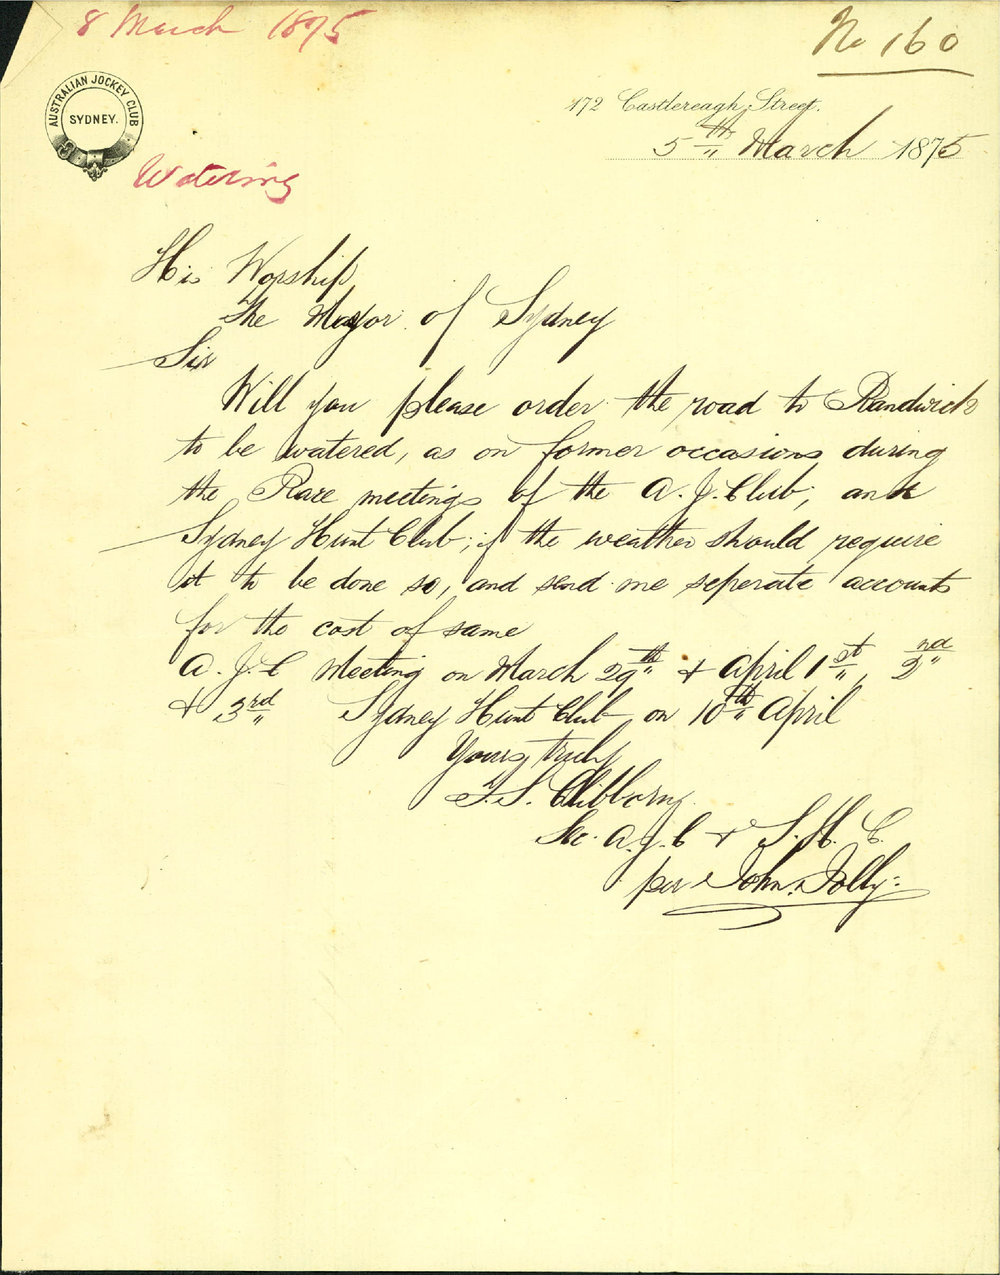 8 March 1875
No 160
AUSTRALIAN JOCKEY CLUB
SYDNEY.
172 Castlereagh Street.
5th March 1875
Watering
His Worship
The Mayor of Sydney
Sir
Will you please order the road to Randwick
to be watered, as on former occasions during
the Race meetings of the A. J. Club, and
Sydney Hunt Club; if the weather should require
it to be done so, and send me seperate accounts
for the cost of same
A. J. C Meeting on March 29th & April 1st, 2nd
& 3rd Sydney Hunt Club on 10th April
Yours truly
T. S. Clibborn
Sec. A. J. C & S. H. C.
per John Jolly.